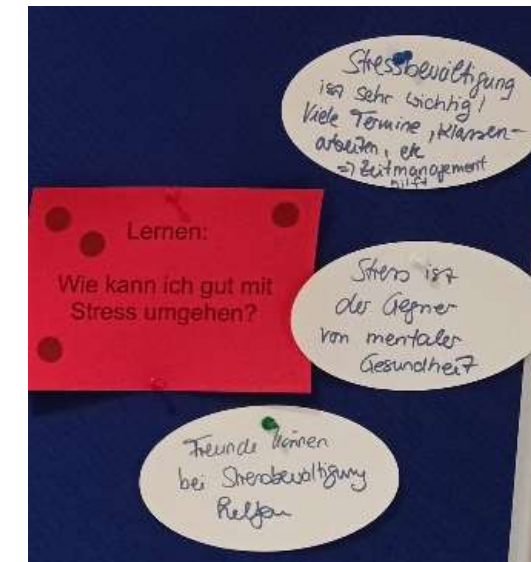 Stressbewältigung
ist sehr wichtig!
Viele Termine, Klassen-
arbeiten, etc
=> Zeitmanagement
hilft
Lernen:
Wie kann ich gut mit
Stress umgehen?
Stress ist
der Gegner
von mentaler
Gesundheit
Freunde können
bei Stressbewältigung
helfen